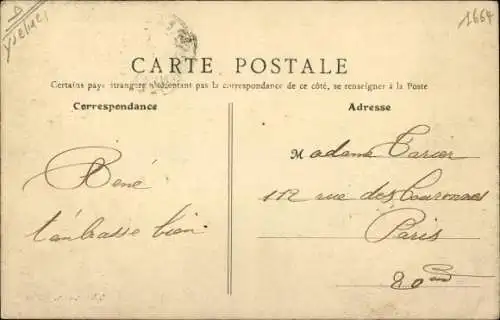 1664
CARTE POSTALE
Certains pays étrangers n'acceptant pas la correspondance de ce côté, se renseigner à la Poste
Correspondance
Adresse
Réné
t'embrasse bien
Madame Carier
112 rue des Couronnes
Paris
20